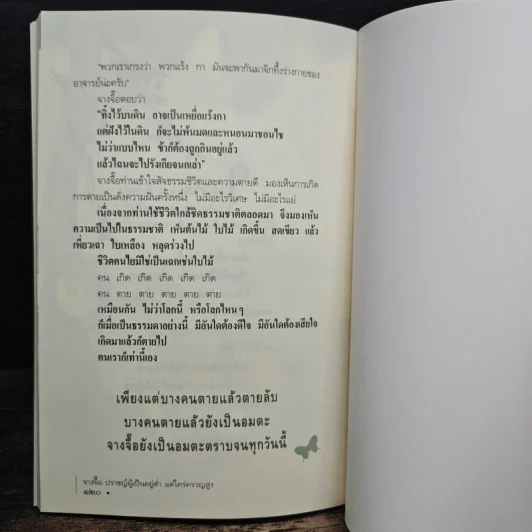 "พวกเราเกรงว่า พวกแร้ง กา มันจะพากันมาจิกทึ้งร่างกายของ
อาจารย์น่ะครับ"
จางจื๊อตอบว่า
"ทิ้งไว้บนดิน อาจเป็นเหยื่อแร้งกา
แต่ฝังไว้ในดิน ก็จะไม่พ้นมดและหนอนมาชอนไช
ไม่ว่าแบบไหน ข้าก็ต้องถูกกินอยู่แล้ว
แล้วไฉนจะไปรังเกียจนกเล่า"
จางจื๊อท่านเข้าใจสัจธรรมชีวิตและความตายดี มองเห็นการเกิด
การตายเป็นดั่งความฝันครั้งหนึ่ง ไม่มีอะไรวิเศษ ไม่มีอะไรแย่
เนื่องจากท่านใช้ชีวิตใกล้ชิดธรรมชาติตลอดมา จึงมองเห็น
ความเป็นไปในธรรมชาติ เห็นต้นไม้ ใบไม้ เกิดขึ้น สดเขียว แล้ว
เหี่ยวเฉา ใบเหลือง หลุดร่วงไป
ชีวิตคนไยมิใช่เป็นเฉกเช่นใบไม้
คน เกิด เกิด เกิด เกิด เกิด
คน ตาย ตาย ตาย ตาย ตาย
เหมือนกัน ไม่ว่าโลกนี้ หรือโลกไหนๆ
ก็เมื่อเป็นธรรมดาอย่างนี้ มีอันใดต้องดีใจ มีอันใดต้องเสียใจ
เกิดมาแล้วก็ตายไป
คนเราก็เท่านี้เอง
เพียงแต่บางคนตายแล้วตายลับ
บางคนตายแล้วยังเป็นอมตะ
จางจื๊อยังเป็นอมตะตราบจนทุกวันนี้
จางจื๊อ. ปราชญ์ผู้เป็นอยู่ต่ำ แต่ใคร่ครวญสูง
๑๒๐ •